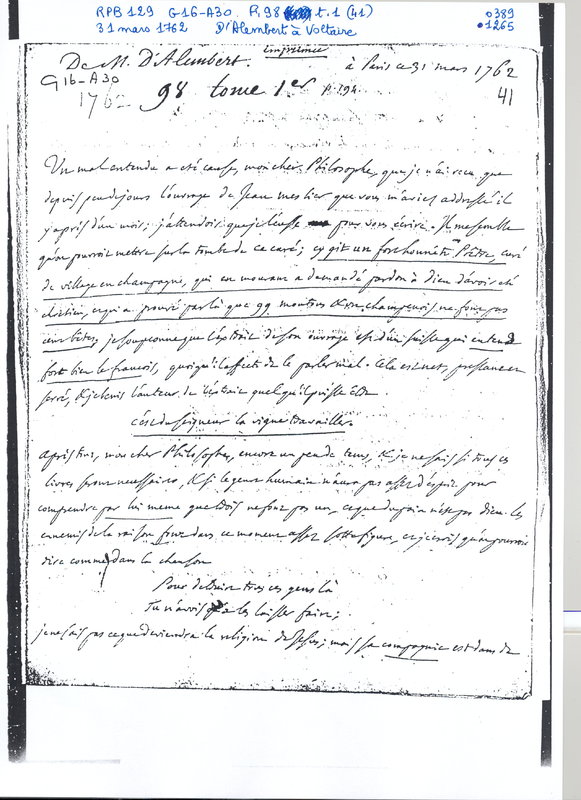 RPB 129 G16-A30 P. 98 t. 1 (41) 0389
31 mars 1762 D'Alembert à Voltaire 1265
imprimée
De M. D'Alembert. à Paris ce 31 mars 1762
G16-A30
1762 98 tome 1er p. 194 41
Un mal entendu a été cause, mon cher Philosophe, que je n'ai reçu que
depuis peu de jours l'ouvrage de Jean meslier que vous m'aviez addressé il
y a près d'un mois; j'attendois que je l'eusse pour vous écrire. Il me semble
qu'on pourroit mettre sur la tombe de ce curé; cy git un fort honnête Prêtre, curé
de village en champagne, qui en mourant a demandé pardon à dieu d'avoir été
chrétien, et qui a prouvé par là que 99 moutons & un champenois ne font pas
cent bêtes. je soupçonne que l'extrait de son ouvrage est d'un suisse qui entend
fort bien le françois, quoiqu'il affecte de le parler mal. Cela est net, pressant et
serré, & je bénis l'auteur de l'extrait quel qu'il puisse être
c'est du seigneur la vigne travailler.
après tout, mon cher Philosophe, encore un peu de tems, & je ne sais si tous ces
livres seront nécessaires, & si le genre humain n'aura pas assez d'esprit pour
comprendre par lui meme que trois ne font pas un, et que du pain n'est pas dieu. les
ennemis de la raison font dans ce moment assez sotte figure, et je crois qu'on pourroit
dire comme dans la chanson
Pour détruire tous ces gens là
Tu n'avois qu'à les laisser faire;
je ne sais pas ce que deviendra la religion de Jesus; mais sa compagnie est dans de